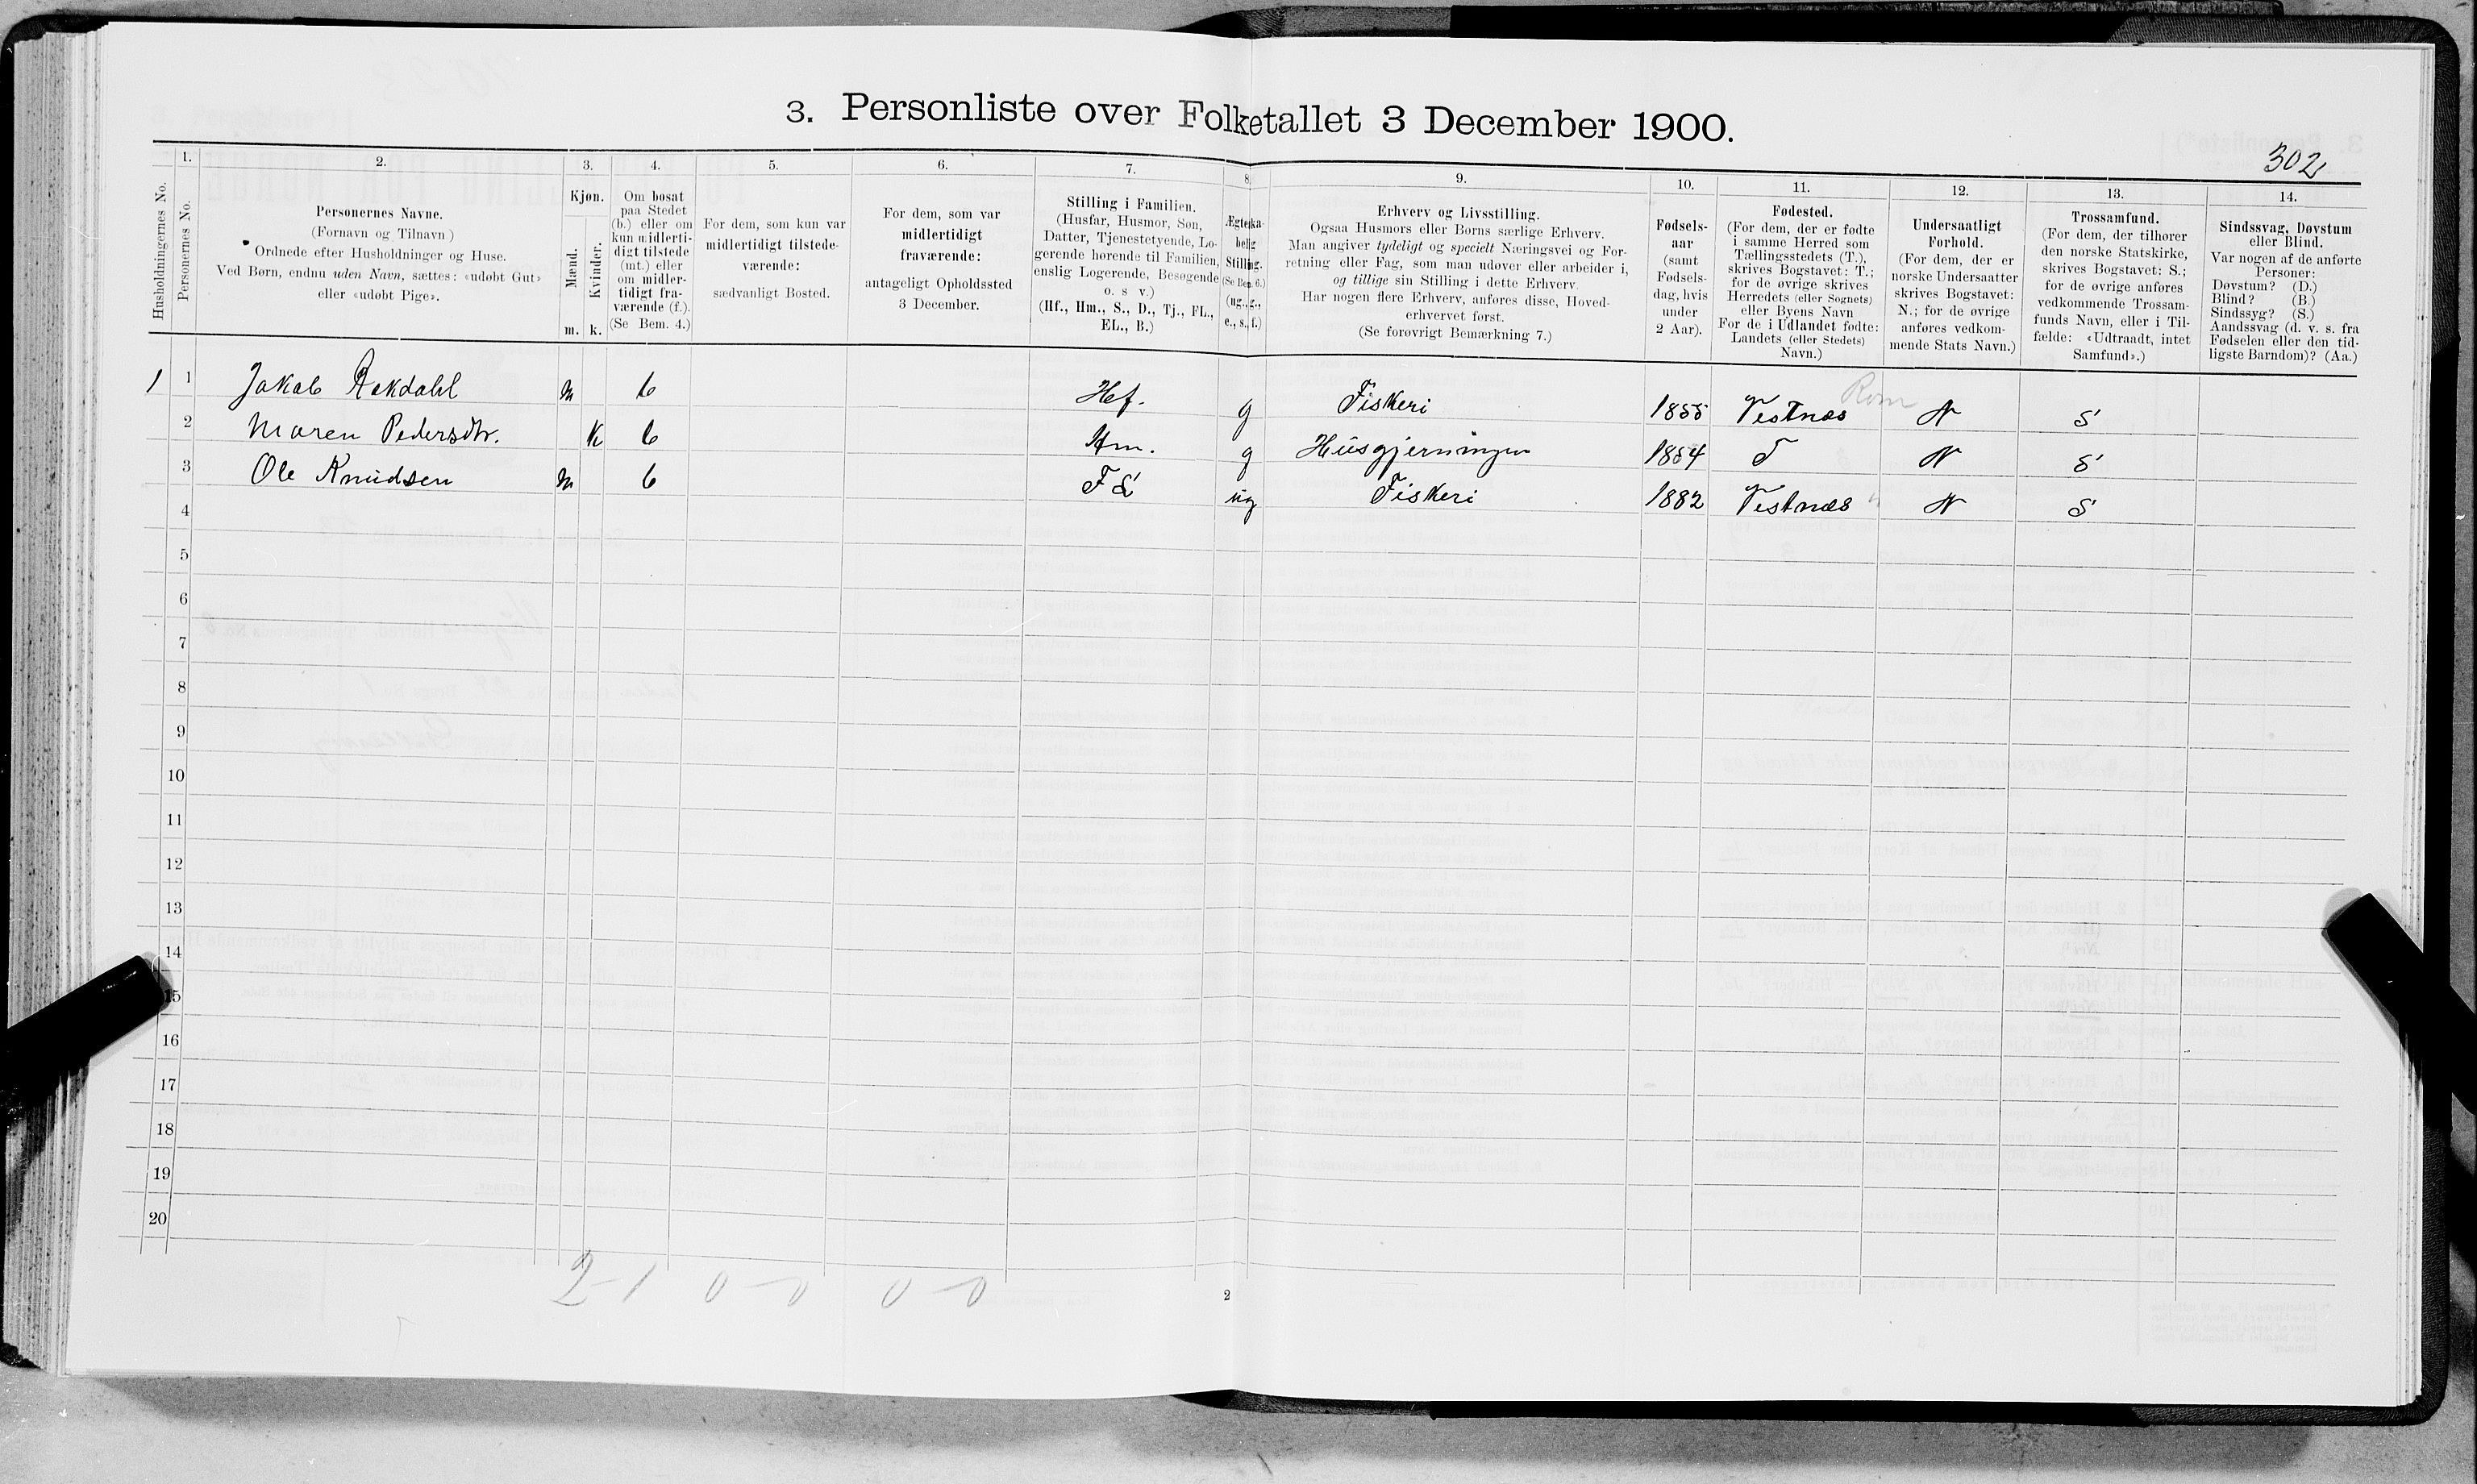 3. Personliste over Folketallet 3 December 1900.
302
1. 2. 3. 4. 5. 6. 7. 8. 9. 10. 11. 12. 13. 14.
Husholdningernes No.
Personernes No.
Personernes Navne.
(Fornavn og Tilnavn)
Ordnede efter Husholdninger og Huse.
Ved Børn, endnu uden Navn, sættes: «udøbt Gut»
eller «udøbt Pige».
Kjøn.
Mænd.
Kvinder.
m. k.
Om bosat
paa Stedet
(b.) eller om
kun midlerti-
digt tilstede
(mt.) eller
om midler-
tidigt fra-
værende (f.).
(Se Bem. 4.)
For dem, som kun var
midlertidigt tilstede-
værende:
sædvanligt Bosted.
For dem, som var
midlertidigt
fraværende:
antageligt Opholdssted
3 December.
Stilling i Familien.
(Husfar, Husmor, Søn,
Datter, Tjenestetyende, Lo-
gerende hørende til Familien,
enslig Logerende, Besøgende
o. s v.)
(Hf., Hm., S., D., Tj., FL.,
EL., B.)
Ægteska-
belig
Stilling.
(Se Bem. 6.)
(ug., g.,
e., s., f.)
Erhverv og Livsstilling.
Ogsaa Husmors eller Børns særlige Erhverv.
Man angiver tydeligt og specielt Næringsvei og For-
retning eller Fag, som man udøver eller arbeider i,
og tillige sin Stilling i dette Erhverv.
Har nogen flere Erhverv, anføres disse, Hoved-
erhvervet først.
(Se forøvrigt Bemærkning 7.)
Fødsels-
aar
(samt
Fødsels-
dag, hvis
under
2 Aar).
Fødested.
(For dem, der er fødte
i samme Herred som
Tællingsstedets (T.),
skrives Bogstavet: T.;
for de øvrige skrives
Herredets (eller Sognets)
eller Byens Navn
For de i Udlandet fødte:
Landets (eller Stedets)
Navn.)
Undersaatligt
Forhold.
(For dem, der er
norske Undersaatter
skrives Bogstavet:
N.; for de øvrige
anføres vedkom-
mende Stats Navn.)
Trossamfund.
(For dem, der tilhører
den norske Statskirke,
skrives Bogstavet: S.;
for de øvrige anføres
vedkommende Trossam-
funds Navn, eller i Til-
fælde: «Udtraadt, intet
Samfund».)
Sindssvag, Døvstum
eller Blind.
Var nogen af de anførte
Personer:
Døvstum? (D.)
Blind? (B.)
Sindssyg? (S.)
Aandssvag (d. v. s. fra
Fødselen eller den tid-
ligste Barndom)? (Aa.)
1 1 Jakob Rekdahl m b Hf. g Fiskeri 1855 Vestnæs Rom N S
2 Maren Pedersdtr. k b Hm. g Husgjerninger 1854 T N S
3 Ole Knudsen m b FL ug Fiskeri 1882 Vestnæs N S
4
5
6
7
8
9
10
11
12
13
14
15
16
17
18
19
20
2-1 0-0 0-0
2